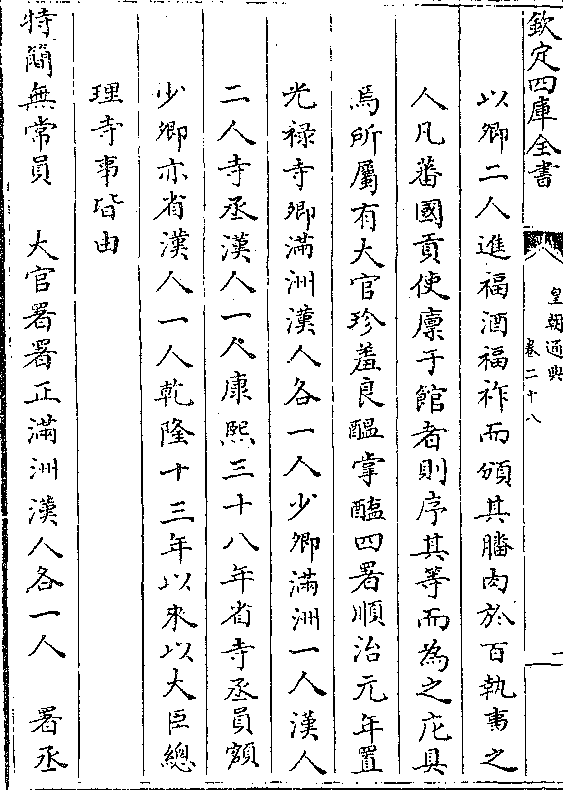 欽定四庫全書
皇朝通典
卷二十八
二
以卿二人進福酒福祚而頒其膰肉於百執事之
人凡蕃國貢使廪于館者則序其等而為之庀具
焉所屬有大官珍羞良醞掌醢四署順治元年置
光禄寺卿滿洲漢人各一人少卿滿洲一人漢人
二人寺丞漢人一人康熙三十八年省寺丞員額
少卿亦省漢人一人乾隆十三年以來以大臣總
理寺事皆由
特簡無常員　大官署署正滿洲漢人各一人　署丞